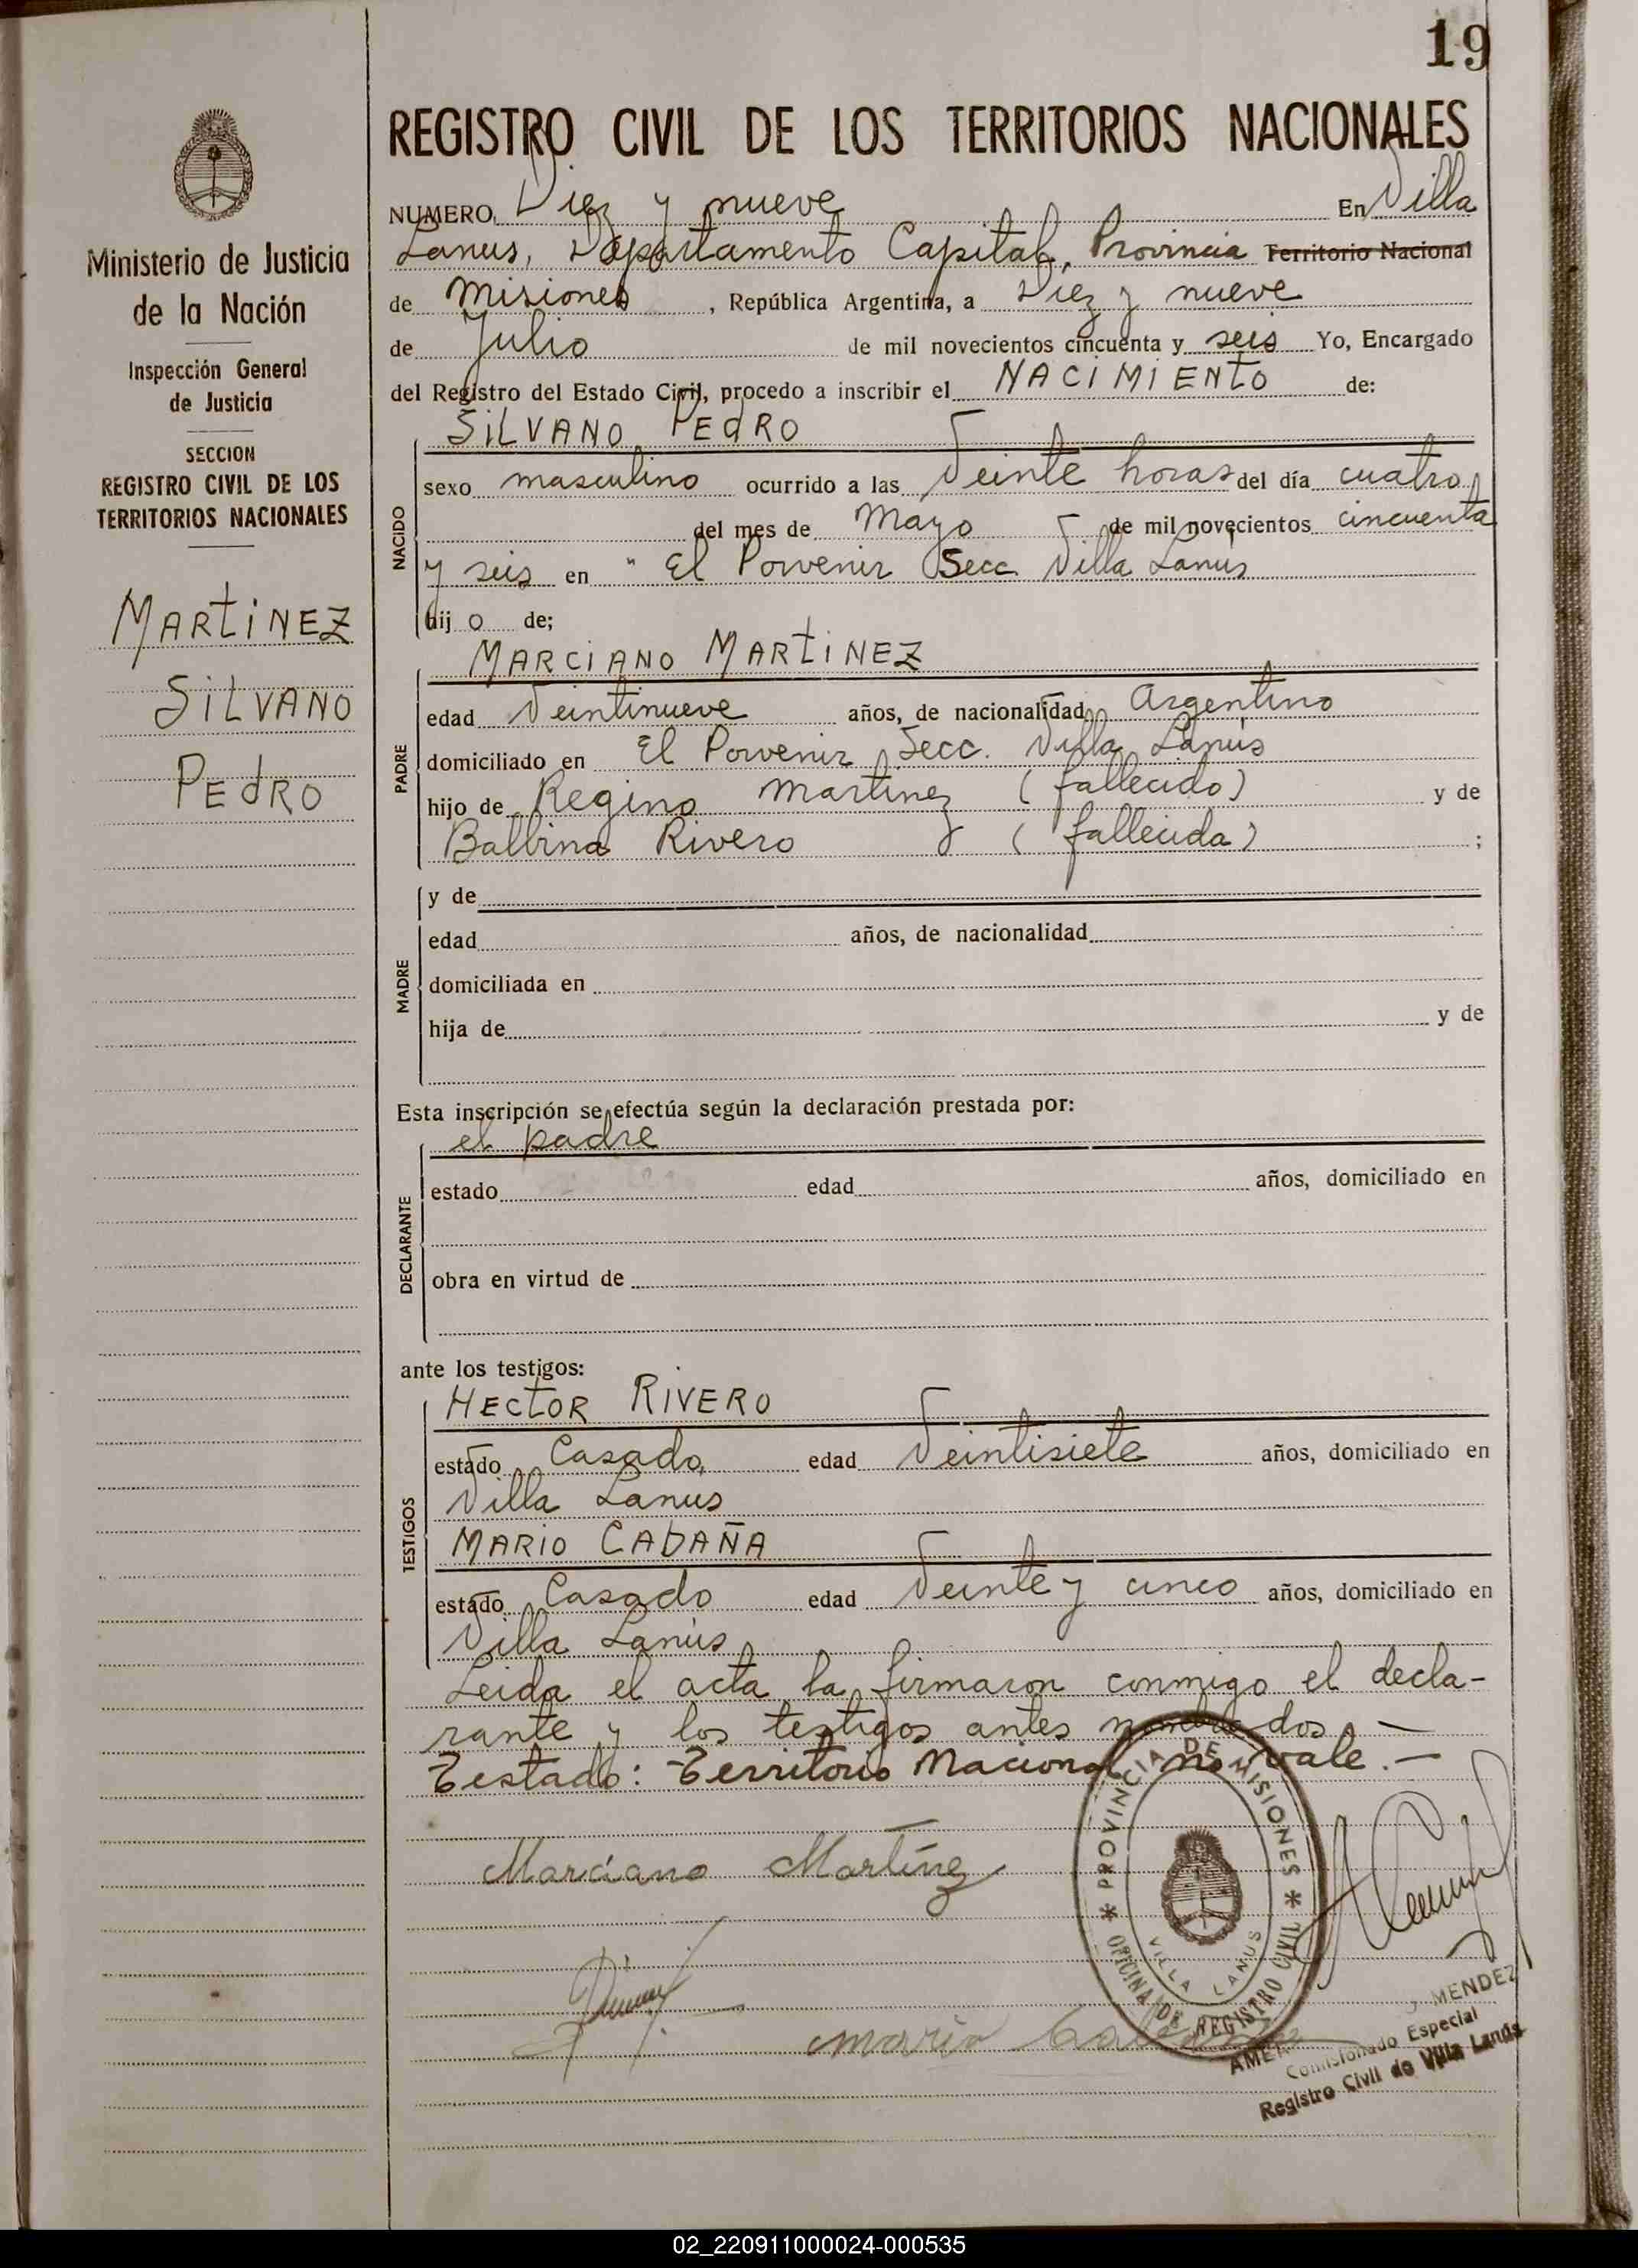 19
REGISTRO CIVIL DE LOS TERRITORIOS NACIONALES
Ministerio de Justicia
de la Nación
Inspección General
de Justicia
SECCION
REGISTRO CIVIL DE LOS
TERRITORIOS NACIONALES
MARTINEZ
SILVANO
PEDRO
NUMERO Diez y nueve En Villa
Lanus, Departamento Capital, Provincia Territorio Nacional
de Misiones, República Argentina, a Diez y nueve
de Julio de mil novecientos cincuenta y seis Yo, Encargado
del Registro del Estado Civil, procedo a inscribir el NACIMIENTO de:
SILVANO PEDRO
NACIDO
sexo masculino ocurrido a las Veinte horas del día cuatro
del mes de Mayo de mil novecientos cincuenta
y seis en " El Porvenir Secc Villa Lanús
hijo de;
MARCIANO MARTINEZ
PADRE
edad Veintinueve años, de nacionalidad Argentino
domiciliado en El Porvenir Secc. Villa Lanús
hijo de Regino Martinez (fallecido) y de
Balbina Rivero (fallecida) ;
y de
MADRE
edad años, de nacionalidad
domiciliada en
hija de y de
Esta inscripción se efectúa según la declaración prestada por:
el padre
DECLARANTE
estado edad años, domiciliado en
obra en virtud de
ante los testigos:
HECTOR RIVERO
TESTIGOS
estado Casado edad Veintisiete años, domiciliado en
Villa Lanus
MARIO CABAÑA
estado Casado edad Veinte y cinco años, domiciliado en
Villa Lanús
Leida el acta la firmaron conmigo el decla-
rante y los testigos antes nombrados. —
Testado: Territorio Nacional no vale. —
Marciano Martínez
PROVINCIA DE MISIONES
OFICINA DE REGISTRO CIVIL
VILLA LANUS
mario
MENDEZ
Comisionado Especial
Registro Civil de Villa Lanús
02_220911000024-000535